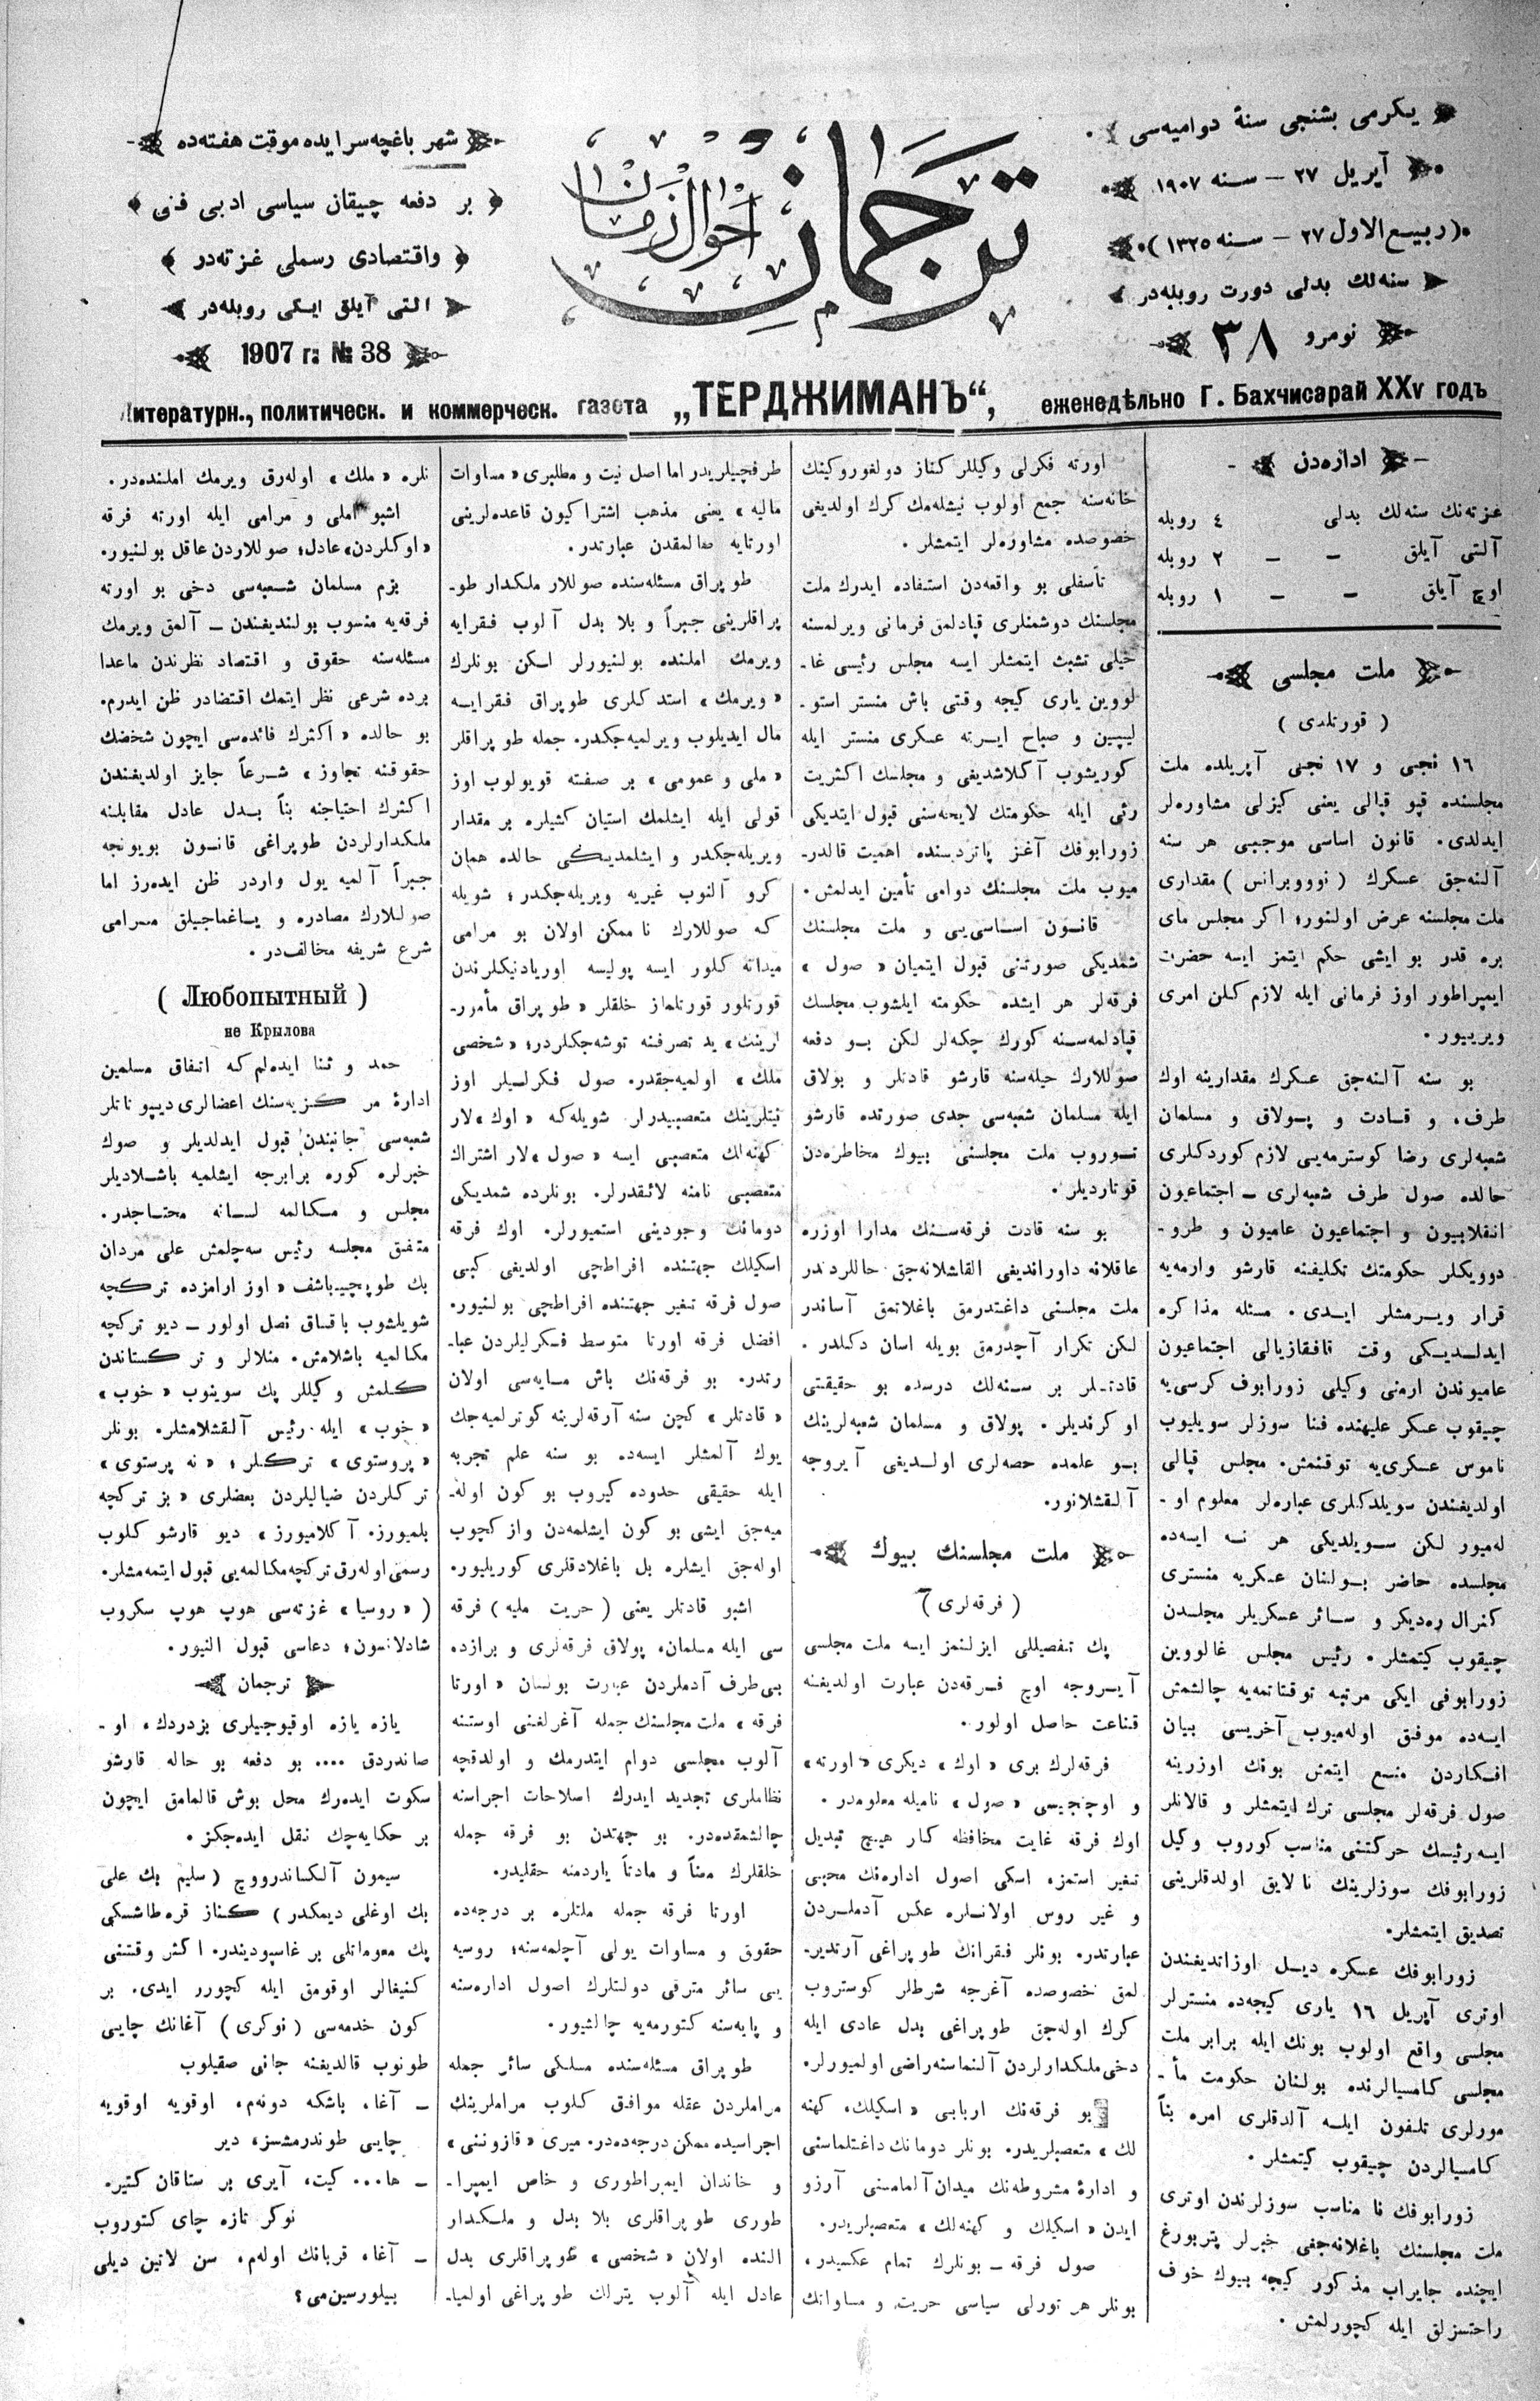 يكرمى بشنجى سنهٔ دواميه‌سى
آپريل ٢٧ — سنه ١٩٠٧
(ربيع الاول ٢٧ — سنه ١٣٢٥)
سنه‌لك بدلى دورت روبله‌در
نومرو ٣٨
ترجمان
احوال زمان
شهر باغچه‌سرايده موقت هفته‌ده
بر دفعه چيقان سياسى ادبى فنى
واقتصادى رسملى غزته‌در
التى آيلق ايكى روبله‌در
1907 г: № 38
Литературн., политическ. и коммерческ. газета „ТЕРДЖИМАНЪ“, еженедѣльно Г. Бахчисарай XXV годъ
اداره‌دن
غزته‌نك سنه‌لك بدلى ٤ روبله
آلتى آيلق — — ٢ روبله
اوچ آيلق — — ١ روبله
ملت مجلسى
( قورتلدى )
١٦ نجى و ١٧ نجى آپريلده ملت
مجلسنده قپو قپالى يعنى كيزلى مشاوره‌لر
ايدلدى. قانون اساسى موجبى هر سنه
آلنه‌جق عسكرك ( نووبرانس ) مقدارى
ملت مجلسنه عرض اولنور؛ اكر مجلس ماى
بره قدر بو ايشى حكم ايتمز ايسه حضرت
ايمپراطور اوز فرمانى ايله لازم كلن امرى
ويرييور.
بو سنه آلنه‌جق عسكرك مقدارينه اوك
طرف، و قادت و پولاق و مسلمان
شعبه‌لرى رضا كوسترمه‌يى لازم كوردكلرى
حالده صول طرف شعبه‌لرى — اجتماعيون
انقلابيون و اجتماعيون عاميون و طرو-
دوويكلر حكومتك تكليفنه قارشو وارمه‌يه
قرار ويرمشلر ايدى. مسئله مذاكره
ايدلديكى وقت قافقازيالى اجتماعيون
عاميوندن ارمنى وكيلى زورابوف كرسى‌يه
چيقوب عسكر عليهنده فنا سوزلر سويليوب
ناموس عسكرى‌يه توقنمش. مجلس قپالى
اولديغندن سويلدكلرى عباره‌لر معلوم او-
له‌ميور لكن سويلديكى هر نه ايسه‌ده
مجلسده حاضر بولنان عسكريه منسترى
كنرال ره‌ديكر و سائر عسكريلر مجلسدن
چيقوب كيتمشلر. رئيس مجلس غالووين
زورابوفى ايكى مرتبه توقتاتمه‌يه چالشمش
ايسه‌ده موفق اوله‌ميوب آخريسى بيان
افكاردن منع ايتمش بونك اوزرينه
صول فرقه‌لر مجلسى ترك ايتمشلر و قالانلر
ايسه رئيسك حركتنى مناسب كوروب وكيل
زورابوفك سوزلرينك نالايق اولدقلرينى
تصديق ايتمشلر.
زورابوفك عسكره ديل اوزاتديغندن
اوترى آپريل ١٦ يارى كيجه‌ده منسترلر
مجلسى واقع اولوب بونك ايله برابر ملت
مجلسى كامسيالرنده بولنان حكومت مأ-
مورلرى تلفون ايله آلدقلرى امره بنأ
كامسيالردن چيقوب كيتمشلر.
زورابوفك نا مناسب سوزلرندن اوترى
ملت مجلسنك باغلانه‌جغى خبرلر پتربورغ
ايچنده جايراب مذكور كيجه بيوك خوف
راحتسزلق ايله كچورلمش.
اورته فكرلى وكيللر كناز دولغوروكينك
خانه‌سنه جمع اولوب نيشله‌مك كرك اولديغى
خصوصده مشاوره‌لر ايتمشلر.
تأسفلى بو واقعه‌دن استفاده ايدرك ملت
مجلسنك دوشمنلرى قپادلمق فرمانى ويرلمسنه
خيلى تشبث ايتمشلر ايسه مجلس رئيسى غا-
لووين يارى كيجه وقتى باش منستر استو-
ليپين و صباح ايرته عسكرى منستر ايله
كوريشوب آكلاشديغى و مجلسك اكثريت
رئى ايله حكومتك لايحه‌سنى قبول ايتديكى
زورابوفك آغز پاتردیسنده اهميت قالدر-
ميوب ملت مجلسنك دوامى تأمين ايدلمش.
قانون اساسى‌يى و ملت مجلسنك
شمديكى صورتنى قبول ايتميان «صول»
فرقه‌لر هر ايشده حكومته ايلشوب مجلسك
قپادلمه‌سنه كورك چكه‌لر لكن بو دفعه
صوللارك حيله‌سنه قارشو قادتلر و پولاق
ايله مسلمان شعبه‌سى جدى صورتده قارشو
توروب ملت مجلسنى بيوك مخاطره‌دن
قوتارديلر.
بو سنه قادت فرقه‌سنك مدارا اوزره
عاقلانه داورانديغى القاشلانه‌جق حاللردندر
ملت مجلسنى داغتدرمق باغلاتمق آساندر
لكن تكرار آچدرمق بويله اسان دكلدر.
قادتلر بر سنه‌لك درسده بو حقيقتى
اوكرنديلر. پولاق و مسلمان شعبه‌لرينك
بو علمده حصه‌لرى اولديغى آيروجه
آلقشلانور.
ملت مجلسنك بيوك
( فرقه‌لرى )
پك تفصيللى ايزلنمز ايسه ملت مجلسى
آيروجه اوچ فرقه‌دن عبارت اولديغنه
قناعت حاصل اولور.
فرقه‌لرك برى «اوك» ديكرى «اورته»
و اوچنجيسى «صول» ناميله معلومدر.
اوك فرقه غايت محافظه كار هيچ تبديل
تغير استمز، اسكى اصول اداره‌نك محبى
و غير روس اولانلره عكس آدملردن
عبارتدر. بونلر فقرانك طوپراغى آرتدير-
لمق خصوصده آغرجه شرطلر كوستروب
كرك اوله‌جق طوپراغى بدل عادى ايله
دخى ملكدارلردن آلنماسنه راضى اولميورلر.
بو فرقه‌نك اربابى «اسكيلك، كهنه
لك» متعصبلريدر. بونلر دومانك داغتلماسنى
و ادارهٔ مشروطه‌نك ميدان آلمامسنى آرزو
ايدن «اسكيلك و كهنه‌لك» متعصبلريدر.
صول فرقه — بونلرك تمام عكسيدر،
بونلر هر تورلى سياسى حريت و مساواتك
طرفچيلريدر اما اصل نيت و مطلبرى «مساوات
ماليه» يعنى مذهب اشتراكيون قاعده‌لرينى
اورتايه صالمقدن عبارتدر.
طوپراق مسئله‌سنده صوللار ملكدار طو-
پراقلرينى جبراً و بلا بدل آلوب فقرايه
ويرمك املنده بولنيورلر لسكن بونلرك
«ويرمك» استدكلرى طوپراق فقرايسه
مال ايديلوب ويرلميه‌جكدر. جمله طوپراقلر
«ملى و عمومى» بر صفته قويولوب اوز
قولى ايله ايشلمك استيان كشيلره بر مقدار
ويريله‌جكدر و ايشلمديكى حالده همان
كرو آلنوب غيريه ويريله‌جكدر؛ شويله
كه صوللارك ناممكن اولان بو مرامى
ميدانه كلور ايسه پوليسه اوريادنيكلرندن
قورتلور قورتلماز خلقلر «طوپراق مأمور-
لرينك» يد تصرفنه توشه‌جكلردر؛ «شخصى
ملك» اولميه‌جقدر. صول فكرليلر اوز
نيتلرينك متعصبيدرلر شويله‌كه «اوك»لار
كهنه‌لك متعصبى ايسه «صول»لار اشتراك
متعصبى نامنه لائقدرلر. بونلرده شمديكى
دومانك وجودينى استميورلر. اوك فرقه
اسكيلك جهتنده افراطچى اولديغى كبى
صول فرقه تغير جهتنده افراطچى بولنيور.
افضل فرقه اورتا متوسط فكرليلردن عبا-
رتدر. بو فرقه‌نك باش مايه‌سى اولان
«قادتلر» كچن سنه آرقه‌لرينه كوترلميه‌جك
يوك آلمشلر ايسه‌ده بو سنه علم تجربه
ايله حقيقى حدوده كيروب بو كون اوله-
ميه‌جق ايشى بو كون ايشلمه‌دن وازكچوب
اوله‌جق ايشلره بل باغلادقلرى كوريليور.
اشبو قادتلر يعنى ( حريت مليه ) فرقه
سى ايله مسلمان، پولاق فرقه‌لرى و برازده
بى‌طرف آدملردن عبارت بولنان «اورتا
فرقه» ملت مجلسنك جمله آغرلغنى اوستنه
آلوب مجلسى دوام ايتدرمك و اولدقچه
نظاملرى تجديد ايدرك اصلاحات اجراسنه
چالشمقده‌در. بو جهتدن بو فرقه جمله
خلقلرك معنأ و مادتاً ياردمنه حقليدر.
اورتا فرقه جمله ملتلره بر درجه‌ده
حقوق و مساوات يولى آچلمه‌سنه؛ روسيه
يى سائر مترقى دولتلرك اصول اداره‌سنه
و پايه‌سنه كتورمه‌يه چالشيور.
طوپراق مسئله‌سنده مسلكى سائر جمله
مراملردن عقله موافق كلوب مراملرينك
اجراسيده ممكن درجه‌ده‌در. ميرى «قازوننى»
و خاندان ايمپراطورى و خاص ايمپرا-
طورى طوپراقلرى بلا بدل و ملكدار
النده اولان «شخصى» طوپراقلرى بدل
عادل ايله آلوب يترلك طوپراغى اولميا-
نلره «ملك» اوله‌رق ويرمك املنده‌در.
اشبو املى و مرامى ايله اورته فرقه
«اوكلردن» عادل؛ صوللاردن عاقل بولنيور.
بزم مسلمان شعبه‌سى دخى بو اورته
فرقه‌يه منسوب بولنديغندن — آلمق ويرمك
مسئله‌سنه حقوق و اقتصاد نظرندن ماعدا
برده شرعى نظر ايتمك اقتضادر ظن ايدرم.
بو حالده «اكثرك فائده‌سى ايچون شخصك
حقوقنه تجاوز» شرعاً جايز اولديغندن
اكثرك احتياجنه بنأ بدل عادل مقابلنه
ملكدارلردن طوپراغى قانون بويونجه
جبراً آلميه يول واردر ظن ايده‌رز اما
صوللارك مصادره و ياغماجيلق مرامى
شرع شريفه مخالف‌در.
( Любопытный )
не Крылова
حمد و ثنا ايده‌لم كه اتفاق مسلمين
ادارهٔ مركزيه‌سنك اعضالرى ديپوتاتلر
شعبه‌سى جانبندن قبول ايدلديلر و صوك
خبرلره كوره برابرجه ايشلميه باشلاديلر
مجلس و مكالمه لسانه محتاجدر.
متفق مجلسه رئيس سه‌چلمش على مردان
بك طوپچيباشف «اوز ارامزده تركچه
شويلشوب باقساق نصل اولور — ديو تركچه
مكالميه باشلامش. منلالر و تركستاندن
كلمش وكيللر پك سوينوب «خوب»
«خوب» ايله رئيس آلقشلامشلر. بونلر
«پروستوى» تركلر؛ «نه پرستوى»
تركلردن ضياليلردن بعضلرى «بز تركچه
بلميورز. آكلاميورز» ديو قارشو كلوب
رسمى اوله‌رق تركچه مكالمه‌يى قبول ايتمه‌مشلر.
( «روسيا» غزته‌سى هوپ هوپ سكروب
شادلانسون؛ دعاسى قبول النيور.
ترجمان
يازه يازه اوقيوجيلرى بزدردك، او-
صاندردق .... بو دفعه بو حاله قارشو
سكوت ايده‌رك محل بوش قالمامق ايچون
بر حكايه‌چك نقل ايده‌جكز.
سيمون آلكساندرووچ ( سليم بك على
بك اوغلى ديمكدر ) كناز قره‌طاشسكى
پك معوماتلى بر غاسپوديندر. اكثر وقتنى
كنيغالر اوقومق ايله كچورر ايدى. بر
كون خدمه‌سى ( نوكرى ) آغانك چايى
طونوب قالديغنه جانى صقيلوب
— آغا، باشكه دونه‌م، اوقويه اوقويه
چايى طوندرمشسز، دير
— ها... كيت، آيرى بر ستاقان كتير.
نوكر تازه چاى كتوروب
— آغا، قربانك اوله‌م، سن لاتين ديلى
بيلورسين‌مى؟